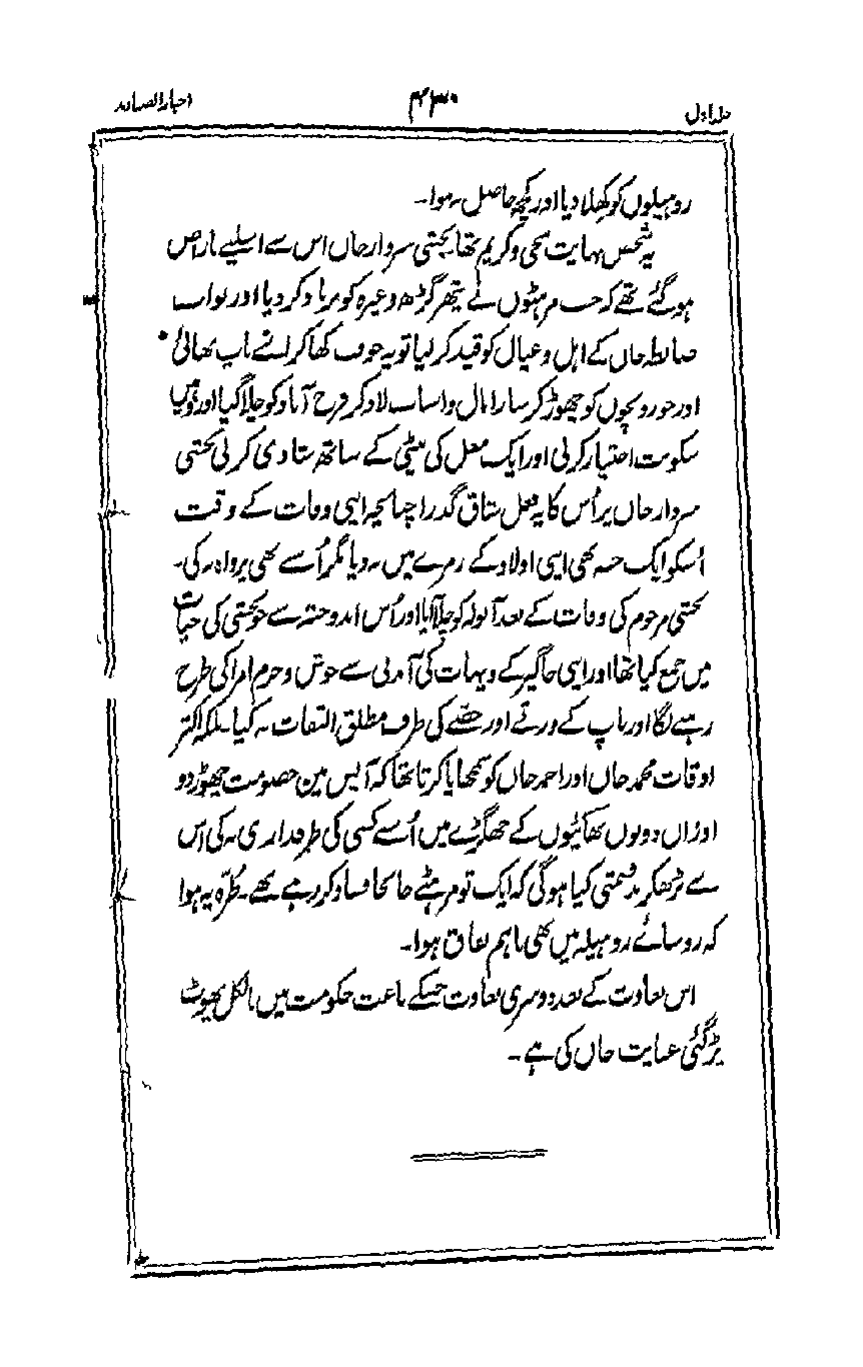 جلد اول ۴۳۰ اخبار الصنادید
روہیلوں کو کھلا دیا اور کچھ حاصل نہ ہوا۔
یہ شخص نہایت سخی و کریم تھا بخشی سردار خاں اس سے اسلیے ناراض
ہو گئے تھے کہ جب مرہٹوں نے پتھر گڑھ وغیرہ کو برباد کر دیا اور نواب
ضابطہ خاں کے اہل و عیال کو قید کر لیا تو یہ خوف کھا کر اپنے باپ بھائی
اور جورو بچوں کو چھوڑ کر سارا مال و اسباب لاد کر فرخ آباد کو چلا گیا اور وہیں
سکونت اختیار کر لی اور ایک مغل کی بیٹی کے ساتھ شادی کر لی بخشی
سردار خاں پر اُس کا یہ فعل شاق گذرا چنانچہ اپنی وفات کے وقت
اُسکو ایک حبہ بھی اپنی اولاد کے زمرے میں نہ دیا مگر اُسے بھی پرواہ نہ کی۔
بخشی مرحوم کی وفات کے بعد آنولہ کو چلا آیا اور اُس اندوختہ سے جو بخشی کی حیات
میں جمع کیا تھا اور اپنی جاگیر کے دیہات کی آمدنی سے خوش و خرم امرا کی طرح
رہنے لگا اور باپ کے ورثے اور حصّے کی طرف مطلق التفات نہ کیا۔ بلکہ اکثر
اوقات محمد خاں اور احمد خاں کو سمجھایا کرتا تھا کہ آپس میں خصومت چھوڑ دو
اور اُن دونوں بھائیوں کے جھگڑے میں اُسنے کسی کی طرفداری نہ کی اس
سے بڑھکر بدقسمتی کیا ہو گی کہ ایک تو مرہٹے جا بجا فساد کر رہے تھے۔ طُرّہ یہ ہوا
کہ روسائے روہیلہ میں بھی باہم نفاق ہوا۔
اس بغاوت کے بعد دوسری بغاوت جسکے باعث حکومت میں بالکل پھوٹ
پڑ گئی عنایت خاں کی ہے۔